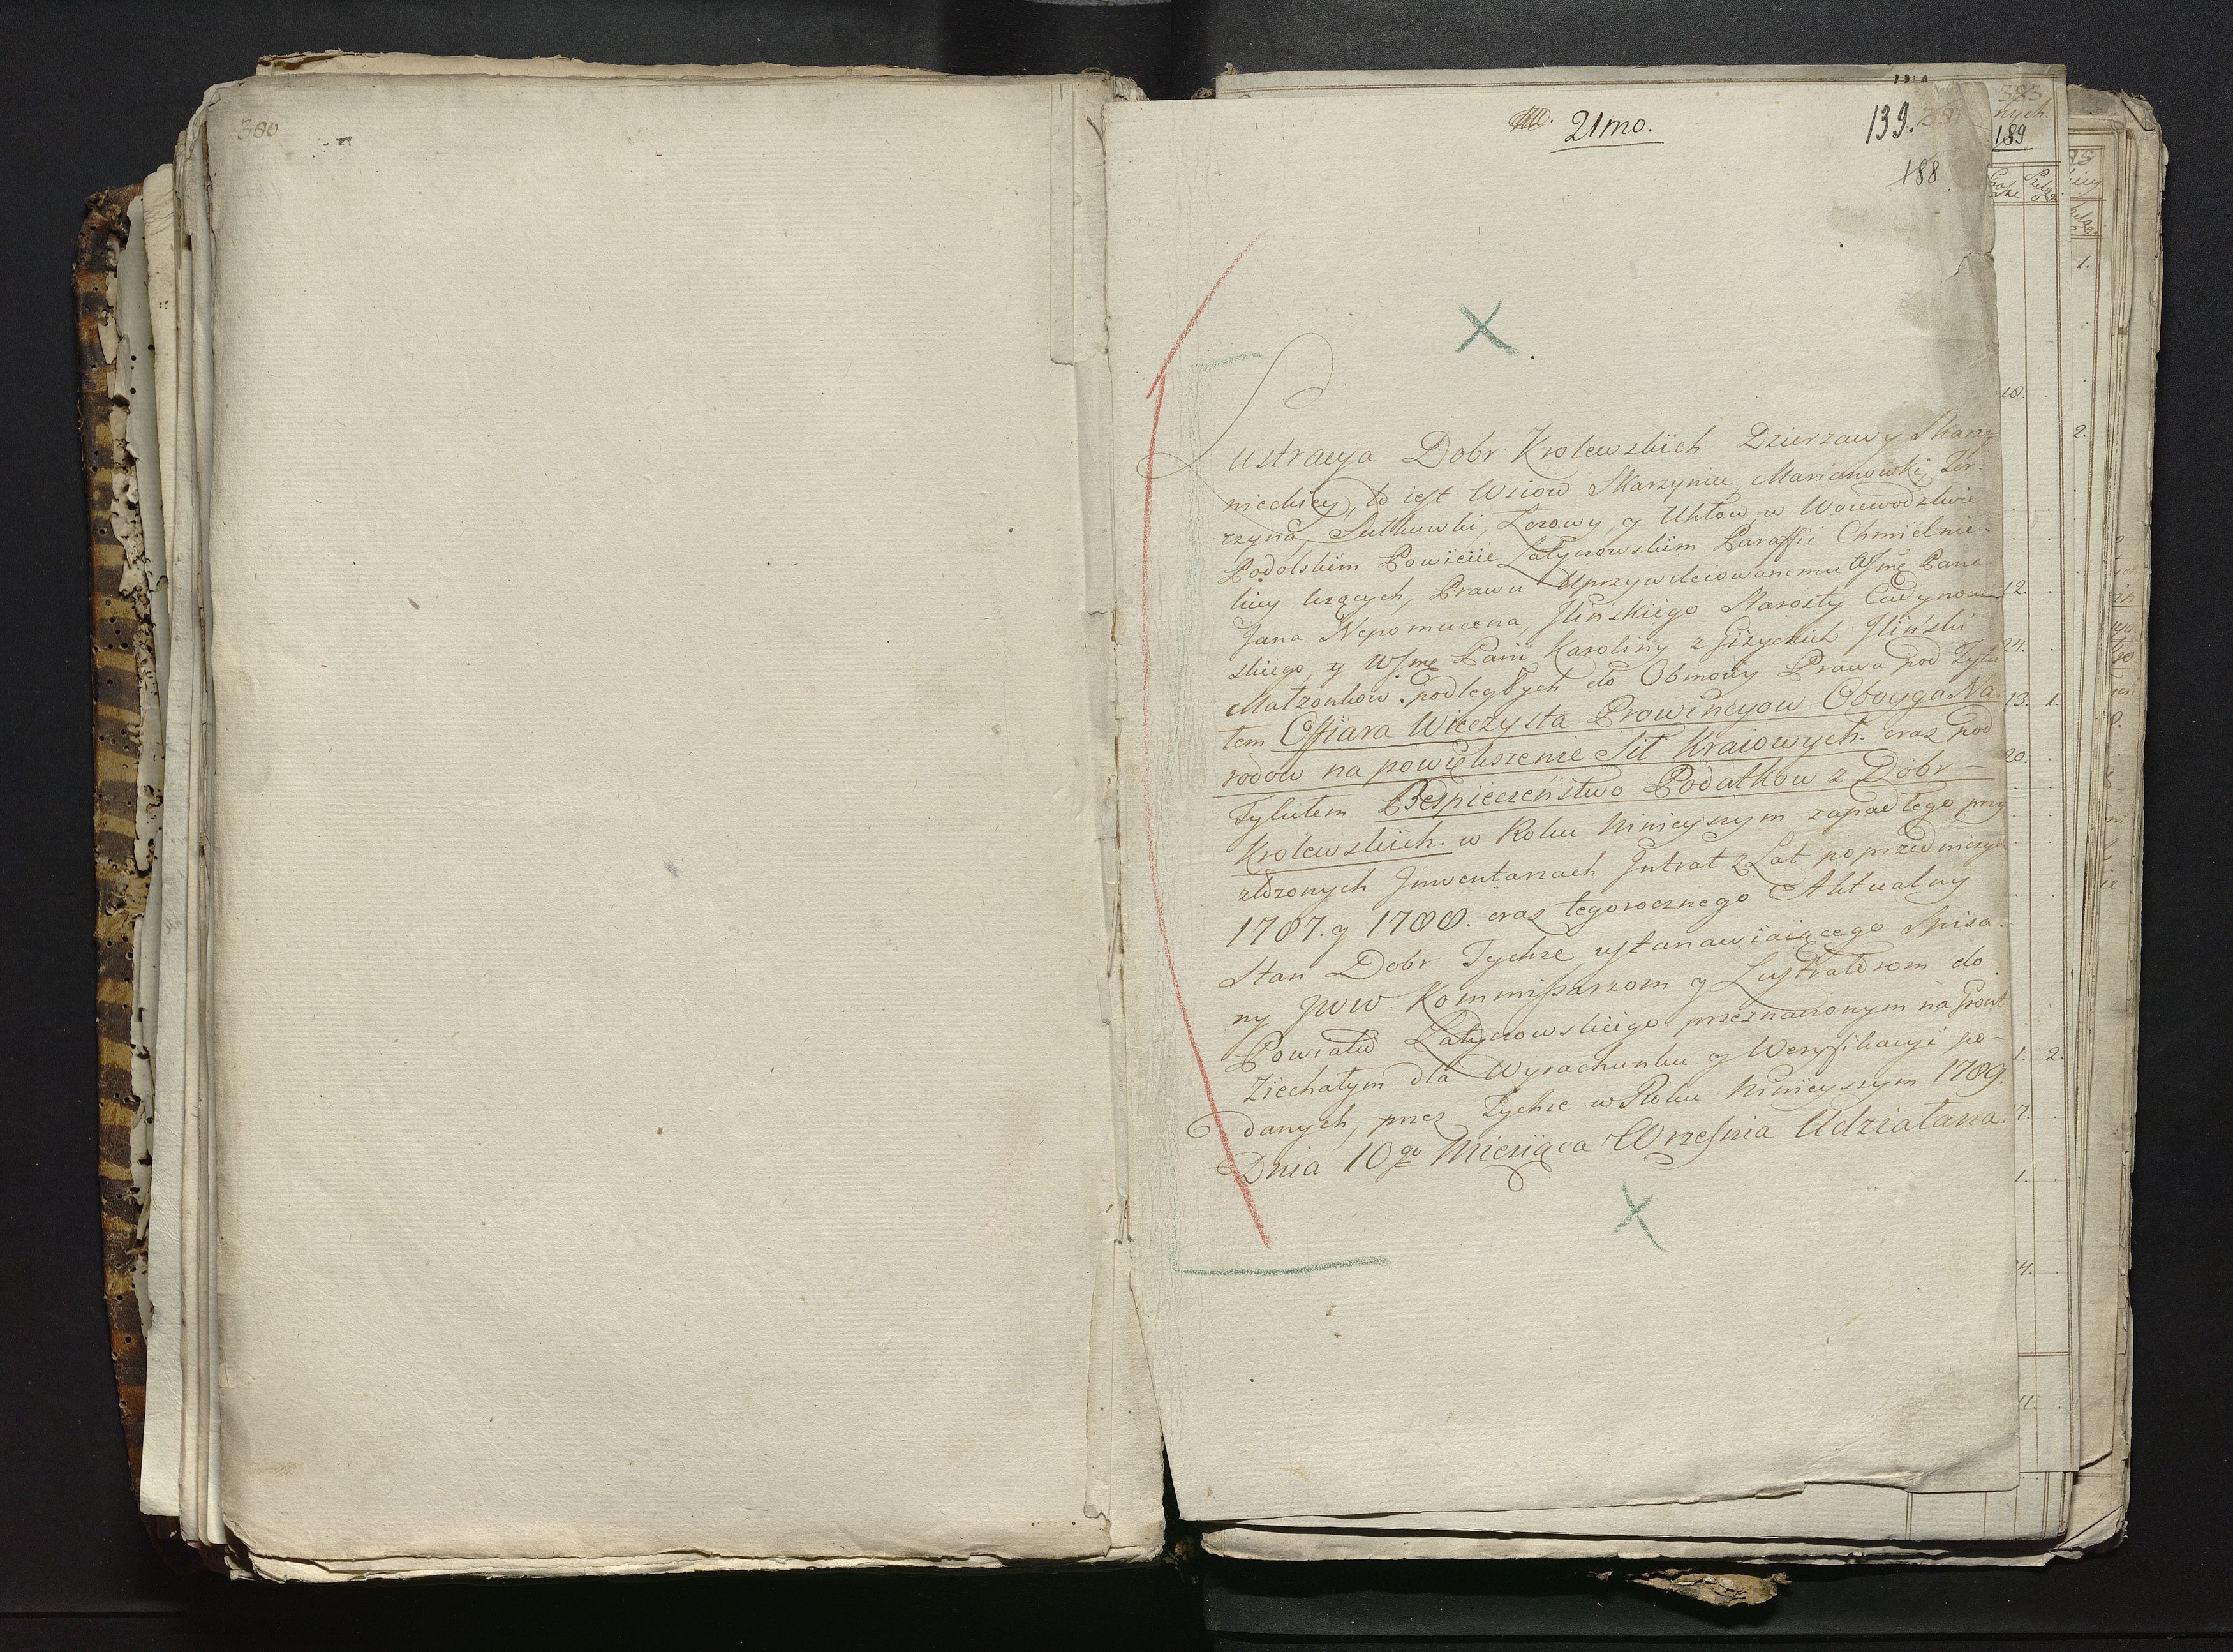 380
21mo.
139.
188
Lustracya Dobr Krolewskich Dzierzawy Skarzy
nieckiey, to iest Wsiow Skarzyniec, Marianowki, Tor-
czyna, Sutkowki, Lozowy, y Uhlow, w Woiewodztwie
Podolskim Powiecie Latyczowskim Paraffii Chmielnic-
kiey leżących, Prawu Uprzywileiowanemu WJmć Pana
Jana Nepomucena Jlińskiego Starosty Cudynow-
skiego, y WJmć Pani Karoliny z Giżyckich Jliński
Małzonkow podległych do Obmowy Prawa pod Tytu
łem Offiara Wieczysta Prowincyow Oboyga Na-
rodow na powiększenie Sił Kraiowych. oraz pod
Tytułem Bespieczeństwo Podatkow z Dobr
Krolewskich. w Roku Ninieyszym zapadłego przy
złożonych Jnwentarzach Jntrat z Lat poprzedniczych
1787. y 1788. oraz tegorocznego Aktualny
Stan Dobr Tychże ustanawiaiącego Spisa-
ny JWW. Kommissarzom y Lustratorom do
Powiatu Latyczowskiego przeznaczonym na Gront
Ziechałym dla Wyrachunku y Weryfikacyi po-
danych, przez Tychże w Roku Ninieyszym 1789.
Dnia 10go Miesiąca Września Udziałana.
383
nych.
189
18.
12.
24.
13. 1.
20.
1. 2.
7.
1.
24.
11.
1.
2.